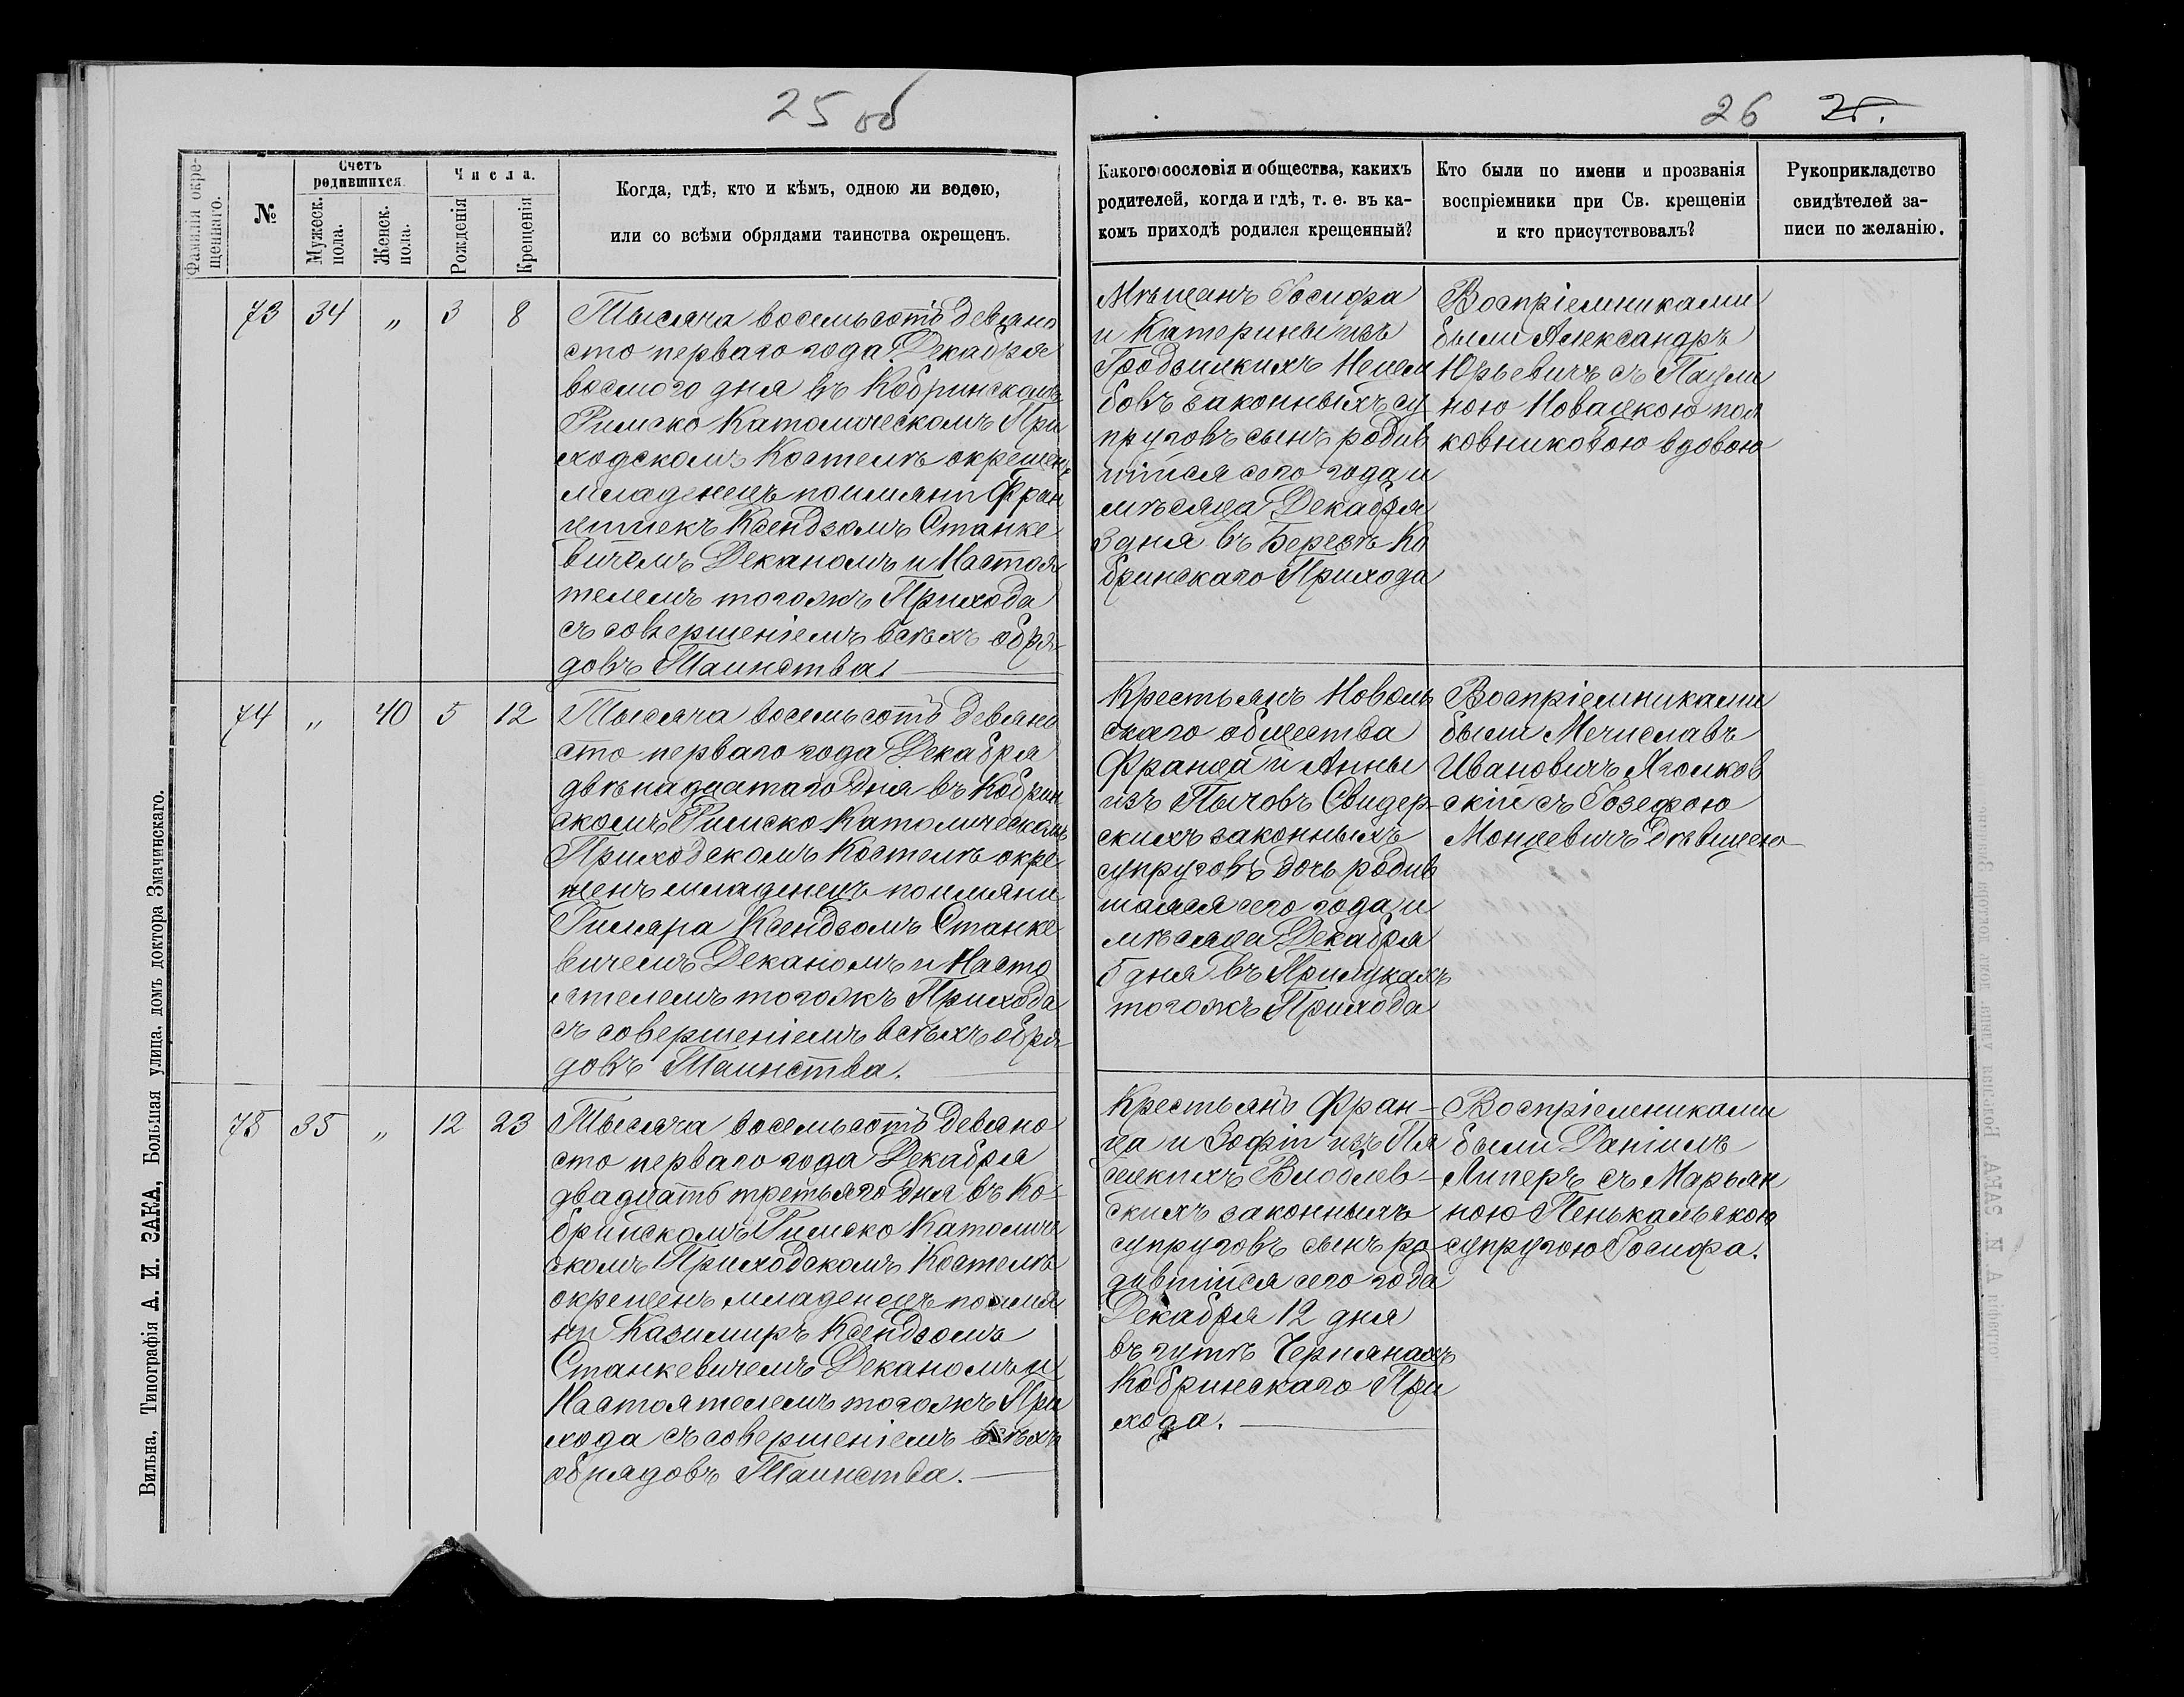 25 об
Фамилія окре-
щеннаго.
№
Счетъ
родившихся.
Мужеск.
пола.
Женск.
пола.
Числа.
Рожденія
Крещенія
Когда, гдѣ, кто и кѣмъ, одною ли водою,
или со всѣми обрядами таинства окрещенъ.
73 34 „ 3 8
Тысяча восемьсотъ девяно
сто перваго года Декабря
восмого дня въ Кобринскомъ
Римско Католическомъ При
ходскомъ Костелѣ окрещенъ
младенецъ поимяни Фран
цишекъ Ксендзомъ Станке
вичемъ Деканомъ и Настоя
телемъ тогожъ Прихода
съ совершеніемъ всѣхъ обря-
довъ Таинства.
74 „ 40 5 12
Тысяча восемьсотъ девяно
сто перваго года Декабря
двѣнадцатаго дня въ Кобрин
скомъ Римско Католическомъ
Приходскомъ Костелѣ окре
щенъ младенецъ поимяни
Ксендзомъ Станке
вичемъ Деканомъ и Насто
ятелемъ тогожъ Прихода
съ совершеніемъ всѣхъ обря-
довъ Таинства.
75 35 „ 12 23
Тысяча восемьсотъ девяно
сто перваго года Декабря
двадцать третьяго дня въ Ко-
бринскомъ Римско Католиче
скомъ Приходскомъ Костелѣ
окрещенъ младенецъ поимя
ни Казимиръ Ксендзомъ
Станкевичемъ Деканомъ и
Настоятелемъ тогожъ При
хода съ совершеніемъ всѣхъ
обрядовъ Таинства.
Вильна, Типографія А. И. ЗАКА, Большая улица, домъ доктора Змачинскаго.
26 25.
Какого сословія и общества, какихъ
родителей, когда и гдѣ, т. е. въ ка-
комъ приходѣ родился крещенный?
Кто были по имени и прозванія
воспріемники при Св. крещеніи
и кто присутствовалъ?
Рукоприкладство
свидѣтелей за-
писи по желанію.
Мѣщанъ Іосифа
и Катерины изъ
Гродзицкихъ
законныхъ су
пруговъ сынъ родив
шійся сего года и
мѣсяца Декабря
3 дня въ Ко
бринскаго Прихода
Воспріемниками
были Александръ
Юрьевичъ съ Паули
ною Новацкою пол
ковниковою вдовою
Крестьянъ Новоль
скаго общества
Франца и Анны
изъ Пыховъ Свидер-
скихъ законныхъ
супруговъ дочь родив
шаяся сего года и
мѣсяца Декабря
5 дня въ Прилукахъ
тогожъ Прихода
Воспріемниками
были Мечиславъ
Ивановичъ Яголков
скій съ Іозефою
Монцевичъ дѣвицею
Крестьянъ Фран-
ца и Зофіи изъ Пя
сецкихъ
скихъ законныхъ
супруговъ сынъ ро-
дившійся сего года
Декабря 12 дня
въ гутѣ Черянахъ
Кобринскаго При
хода.
Воспріемниками
были Даніилъ
Липеръ съ Марьян
ною Пенькальскою
супругою Іосифа.